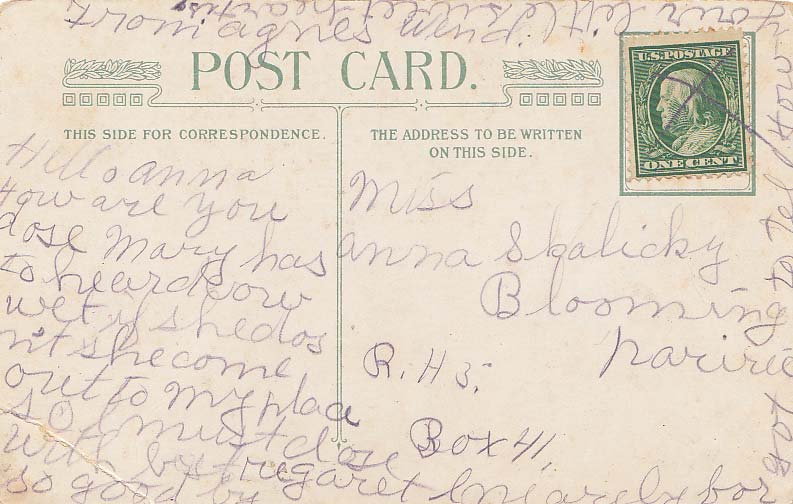 POST CARD.
U.S. POSTAGE
ONE CENT
THIS SIDE FOR CORRESPONDENCE.
THE ADDRESS TO BE WRITTEN
ON THIS SIDE.
Hello anna
How are you
dose Mary has
to heard cow
wet if she dos
n't she come
out to my place
so I must close
with bet regaret
so good by
I nearly for
got to tel how
your little sweet heart is
from agnes
Miss
anna Skalicky
Blooming
Pariree
R. H 5.
Box 41,